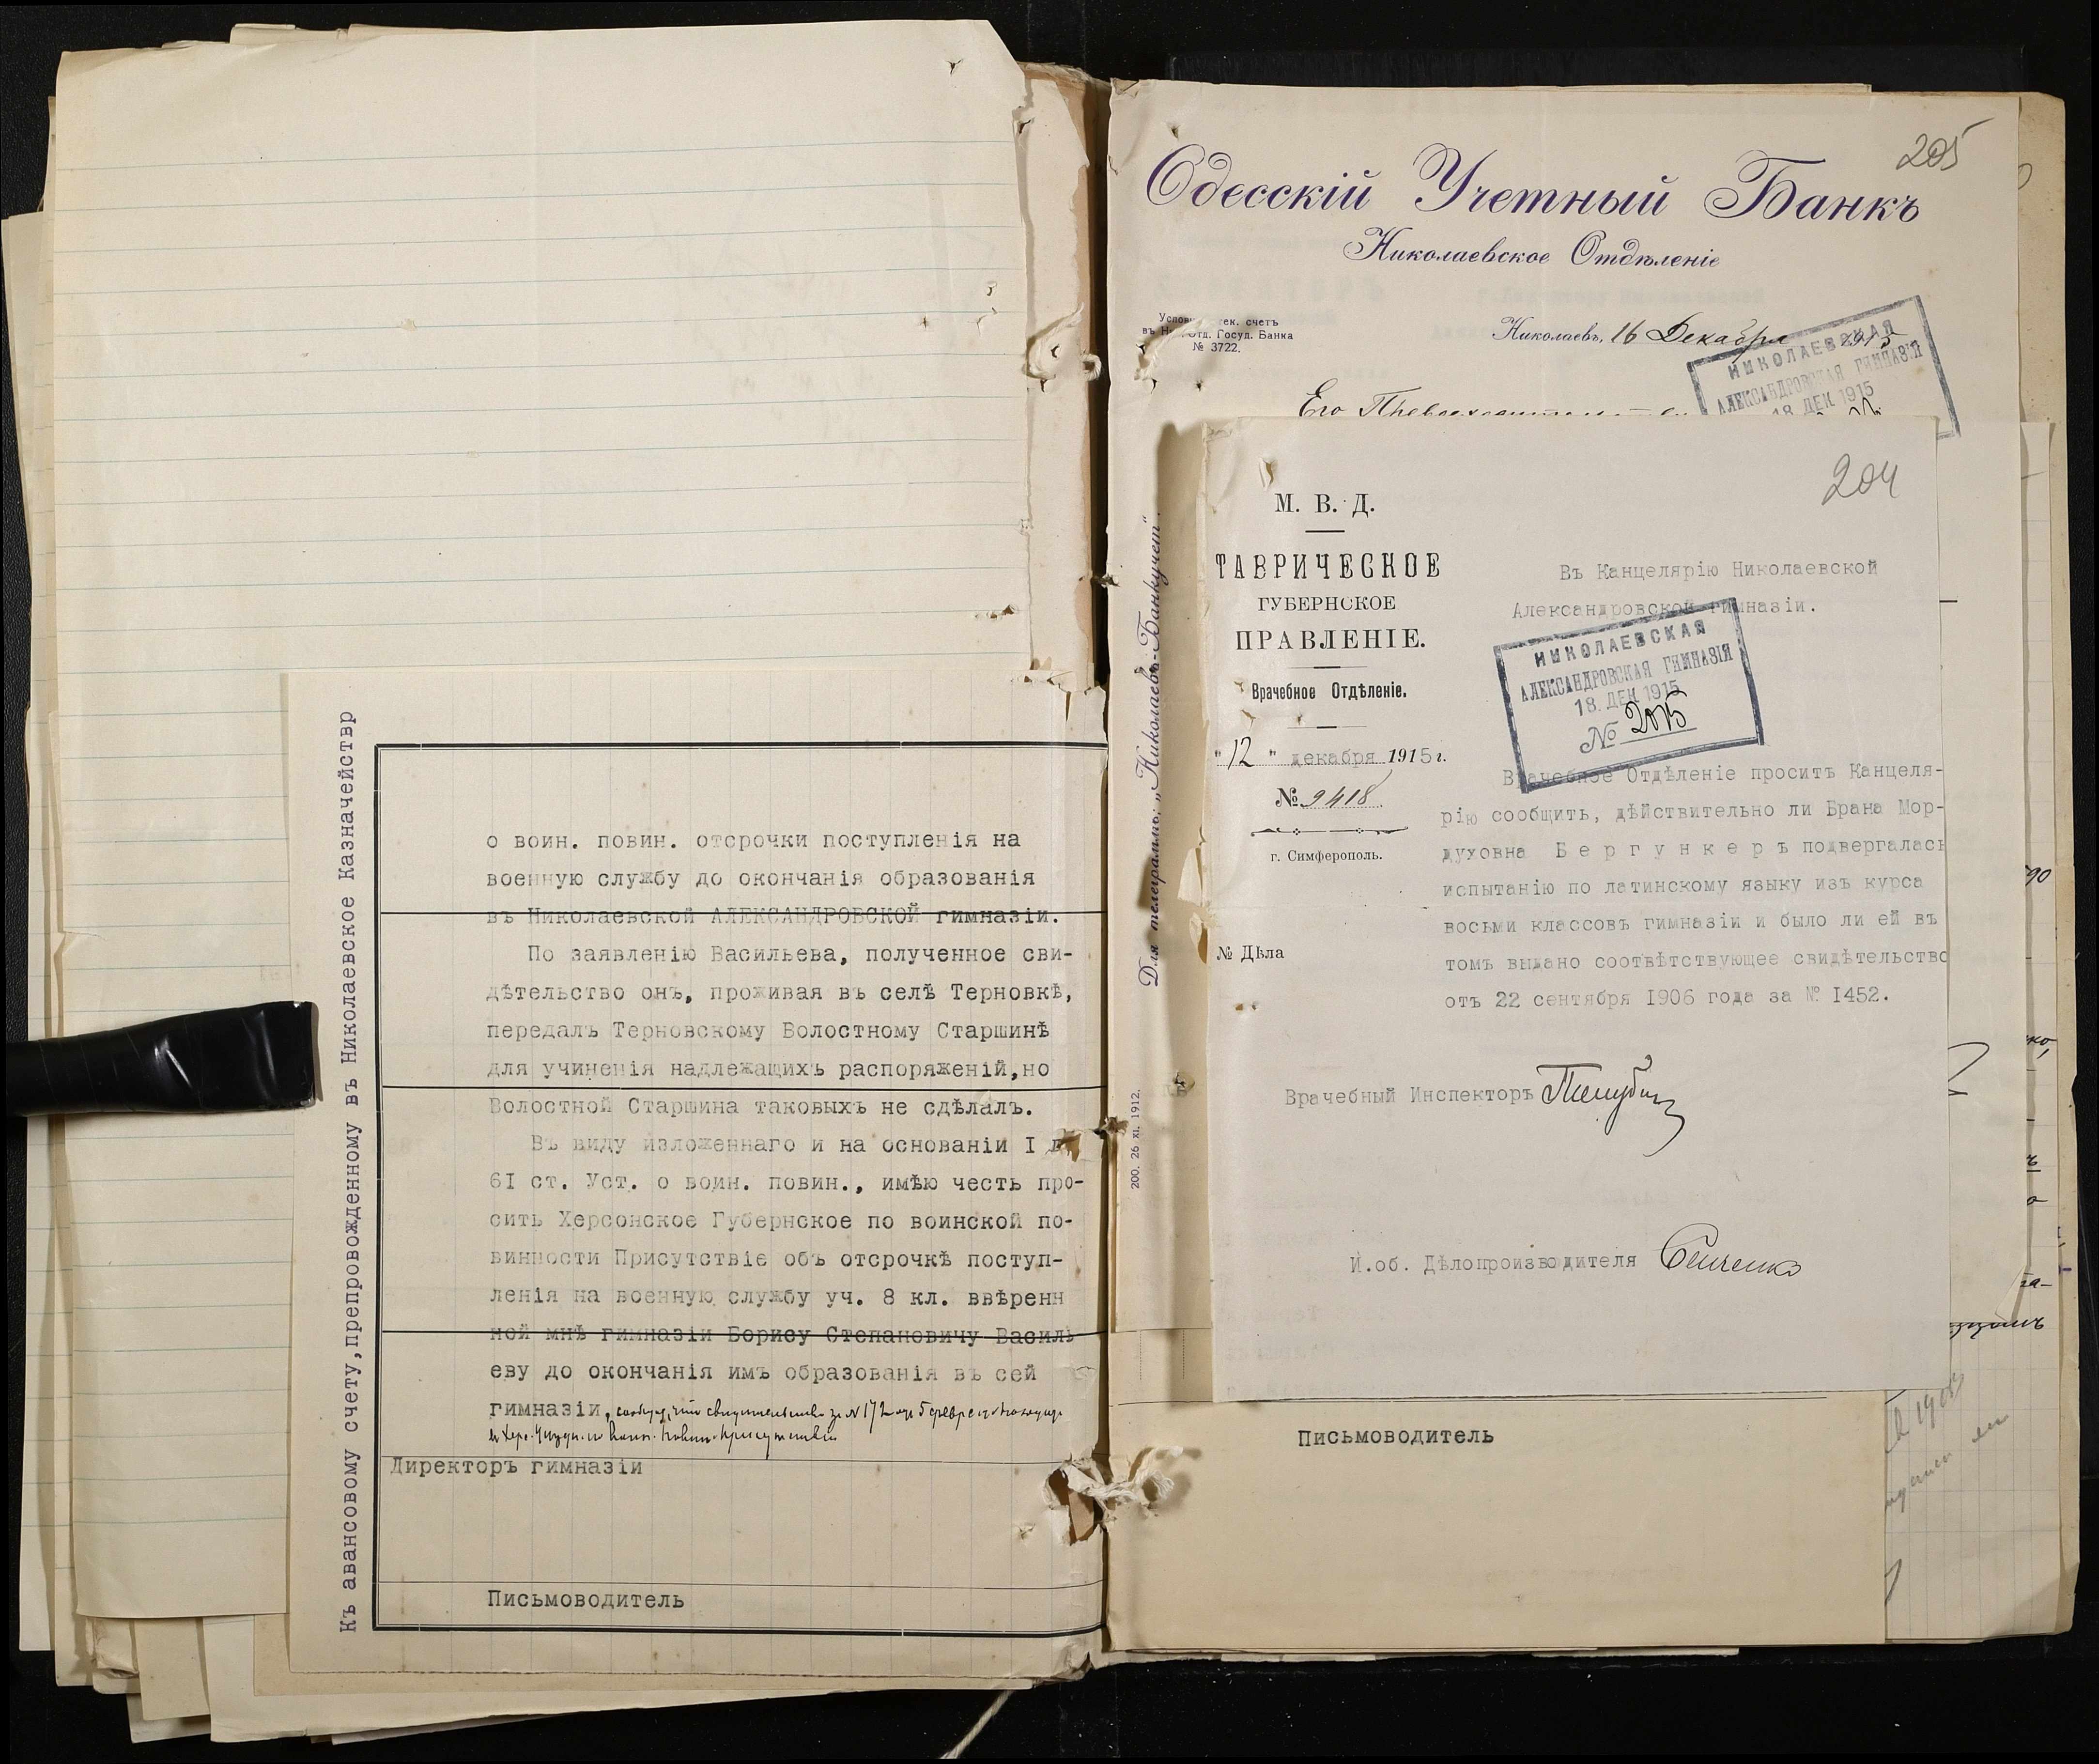 Къ авансовому счету, препровожденному въ Николаевское Казначейстр
о воин. повин. отсрочки поступленія на
военную службу до окончанія образованія
въ Николаевской АЛЕКСАНДРОВСКОЙ гимназіи.
По заявленію Васильева, полученное сви-
дѣтельство онъ, проживая въ селѣ Терновкѣ,
передалъ Терновскому Волостному Старшинѣ
для учиненія надлежащихъ распоряженій, но
Волостной Старшина таковыхъ не сдѣлалъ.
Въ виду изложеннаго и на основаніи I
61 ст. Уст. о воин. повин., имѣю честь про-
сить Херсонское Губернское по воинской по-
винности Присутствіе объ отсрочкѣ поступ-
ленія на военную службу уч. 8 кл. ввѣренн
ной мнѣ гимназіи Борису Степановичу Василь
еву до окончанія имъ образованія въ сей
гимназіи, за № 172
Директоръ гимназіи
Письмоводитель
205
Одесскій Учетный Банкъ
Николаевское Отдѣленіе
тек. счетъ
Отд. Госуд. Банка
№ 3722.
Николаевъ, 16 Декабря 1915
НИКОЛАЕВСКАЯ
АЛЕКСАНДРОВСКАЯ ГИМНАЗІЯ
18 ДЕК 1915
Его
Для телеграммъ: „Николаевъ-Банкучет".
200. 26 XI. 1912.
204
М. В. Д.
ТАВРИЧЕСКОЕ
ГУБЕРНСКОЕ
ПРАВЛЕНІЕ.
Врачебное Отдѣленіе.
"12" декабря 1915 г.
№ 9418
г. Симферополь.
№ Дѣла
Въ Канцелярію Николаевской
Александровской гимназіи.
НИКОЛАЕВСКАЯ
АЛЕКСАНДРОВСКАЯ ГИМНАЗІЯ
18. ДЕК 1915
№
Врачебное Отдѣленіе проситъ Канцеля-
рію сообщить, дѣйствительно ли Брана Мор-
духовна Бергункеръ подвергалась
испытанію по латинскому языку изъ курса
восьми классовъ гимназіи и было ли ей въ
томъ выдано соотвѣтствующее свидѣтельство
отъ 22 сентября 1906 года за № 1452.
Врачебный Инспекторъ
И.об. Дѣлопроизводителя
Письмоводитель